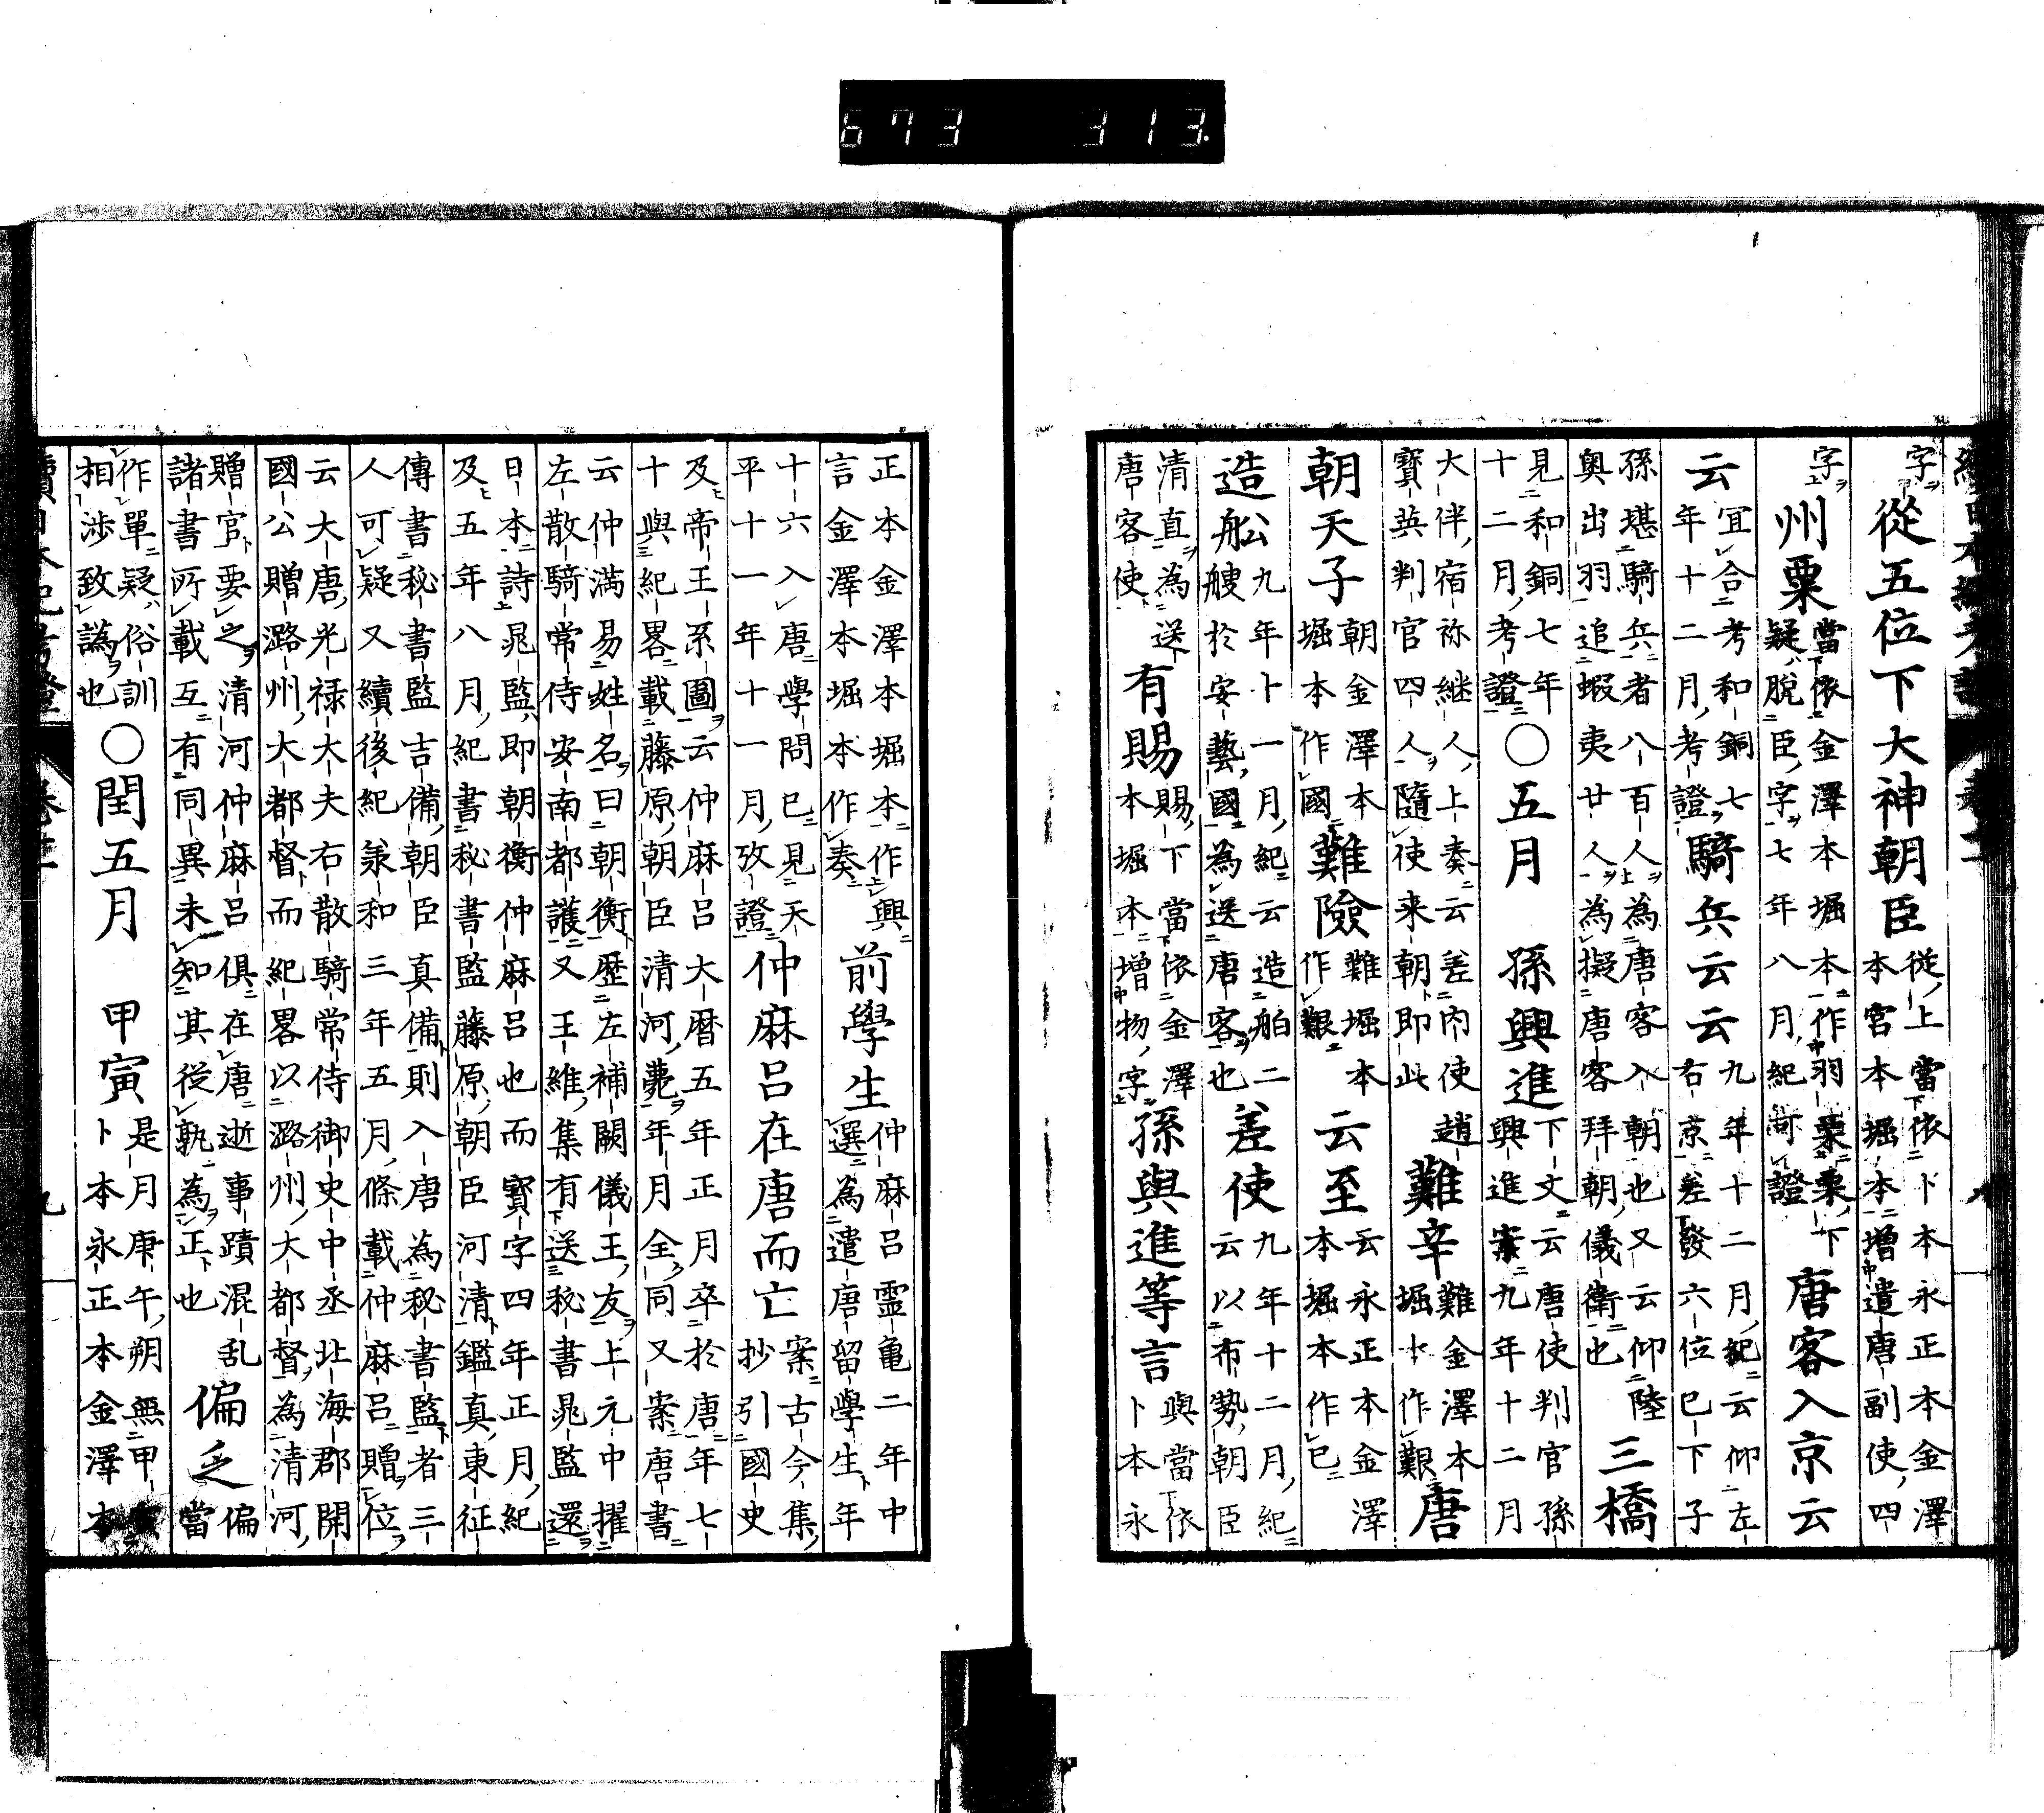 673 313
字從五位下大神朝臣從上當依卜本永正本金澤本宮本堀本增遣唐副使四
字州粟當依金澤本堀本作羽粟粟下疑脫臣字七年八月紀可證唐客入京云
云宜合考和銅七年十二月考證騎兵云云九年十二月紀云仰左右京差發六位已下子
孫堪騎兵者八百人為唐客入朝也又云仰陸奧出羽追蝦夷廿人為擬唐客拜朝儀衛也三橋
見和銅七年十二月考證○五月孫興進下文云唐使判官孫興進案九年十二月
大伴宿祢継人上奏云差内使趙寶英判官四人隨使来朝卽此難辛難金澤本堀本作艱唐
朝天子朝金澤本堀本作國難險難堀本作艱云至云永正本金澤本堀本作已
造舩艘九年十一月紀云造舶二艘於安藝國為送唐客也差使九年十二月紀云以布勢朝臣
清直為送唐客使有賜賜下當依金澤本堀本增物字孫與進等言與當依卜本永
正本金澤本堀本作興言金澤本堀本作奏前學生仲麻呂靈亀二年中選為遣唐留學生年
十六入唐學問已見天平十一年十一月攷證仲麻呂在唐而亡案古今集抄引國史
及帝王系圖云仲麻呂大暦五年正月卒於唐年七十與紀畧載藤原朝臣清河薨年月全同又案唐書
云仲滿易姓名曰朝衡歷左補闕儀王友上元中擢左散騎常侍安南都護又王維集有送秘書晁監還
日本詩晁監即朝衡仲麻呂也而寶字四年正月紀及五年八月紀書秘書監藤原朝臣河清鑑真東征
傳書秘書監吉備朝臣真備則入唐為秘書監者三人可疑又續後紀承和三年五月條載仲麻呂贈位
云大唐光禄大夫右散騎常侍御史中丞北海郡開國公贈潞州大都督而紀畧以潞州大都督為清河
贈官要之清河仲麻呂俱在唐逝事蹟混乱諸書所載互有同異未知其從孰為正也偏乏偏當
作單疑俗訓相渉致譌也○閏五月甲寅是月庚午朔無甲寅卜本永正本金澤本